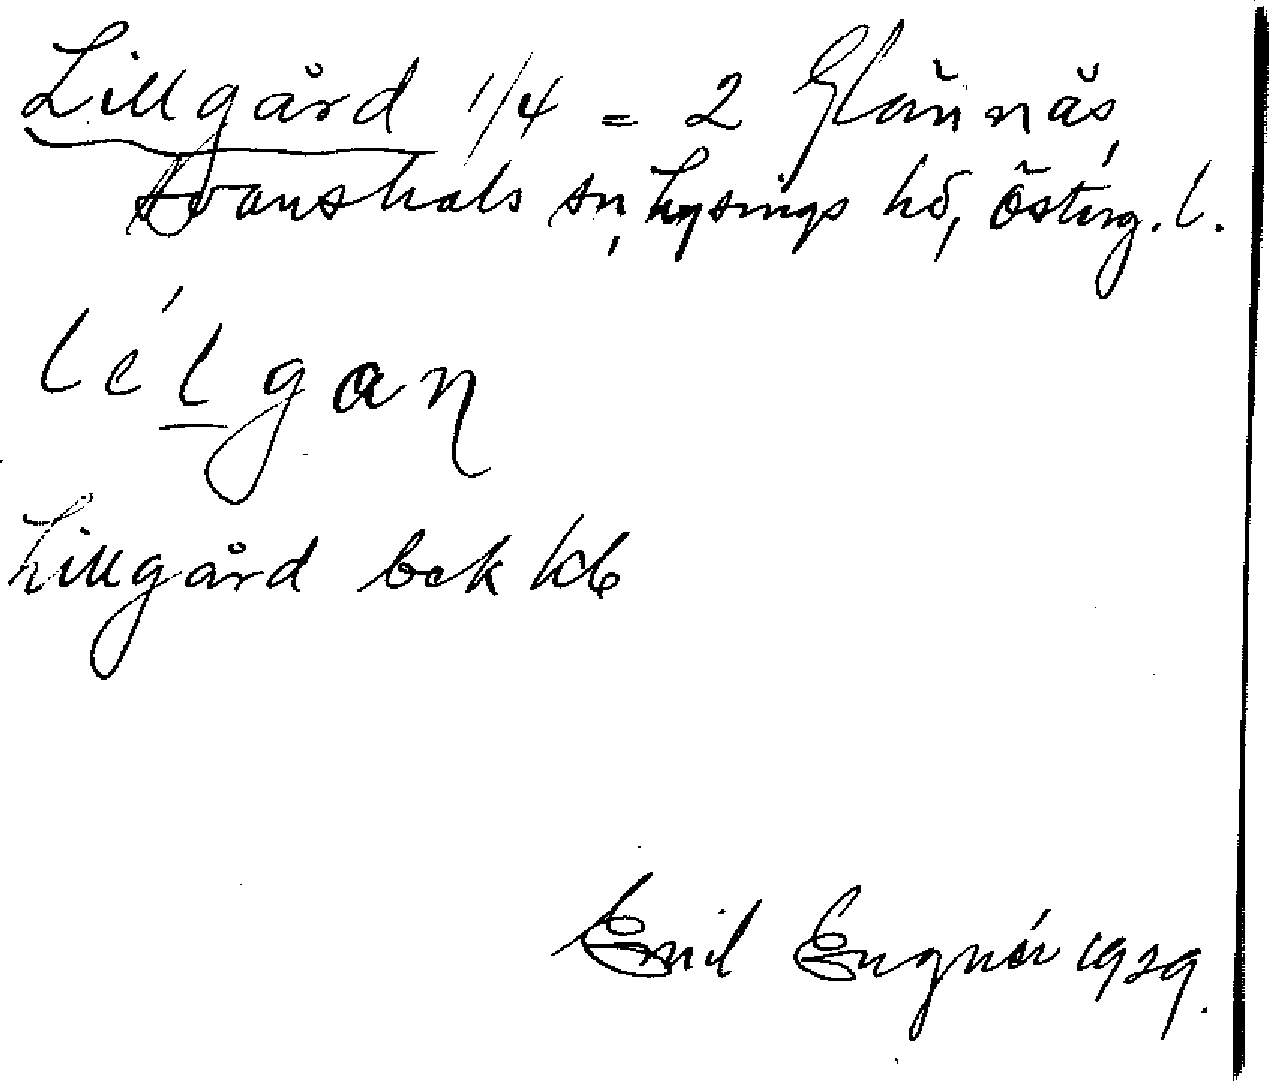 Lillgård 1/4 = 2 Glänås,
Svanshals sn, Lysings hd, Österg. l.
lélgan
Lillgård bek kb
Emil Engnér 1929.